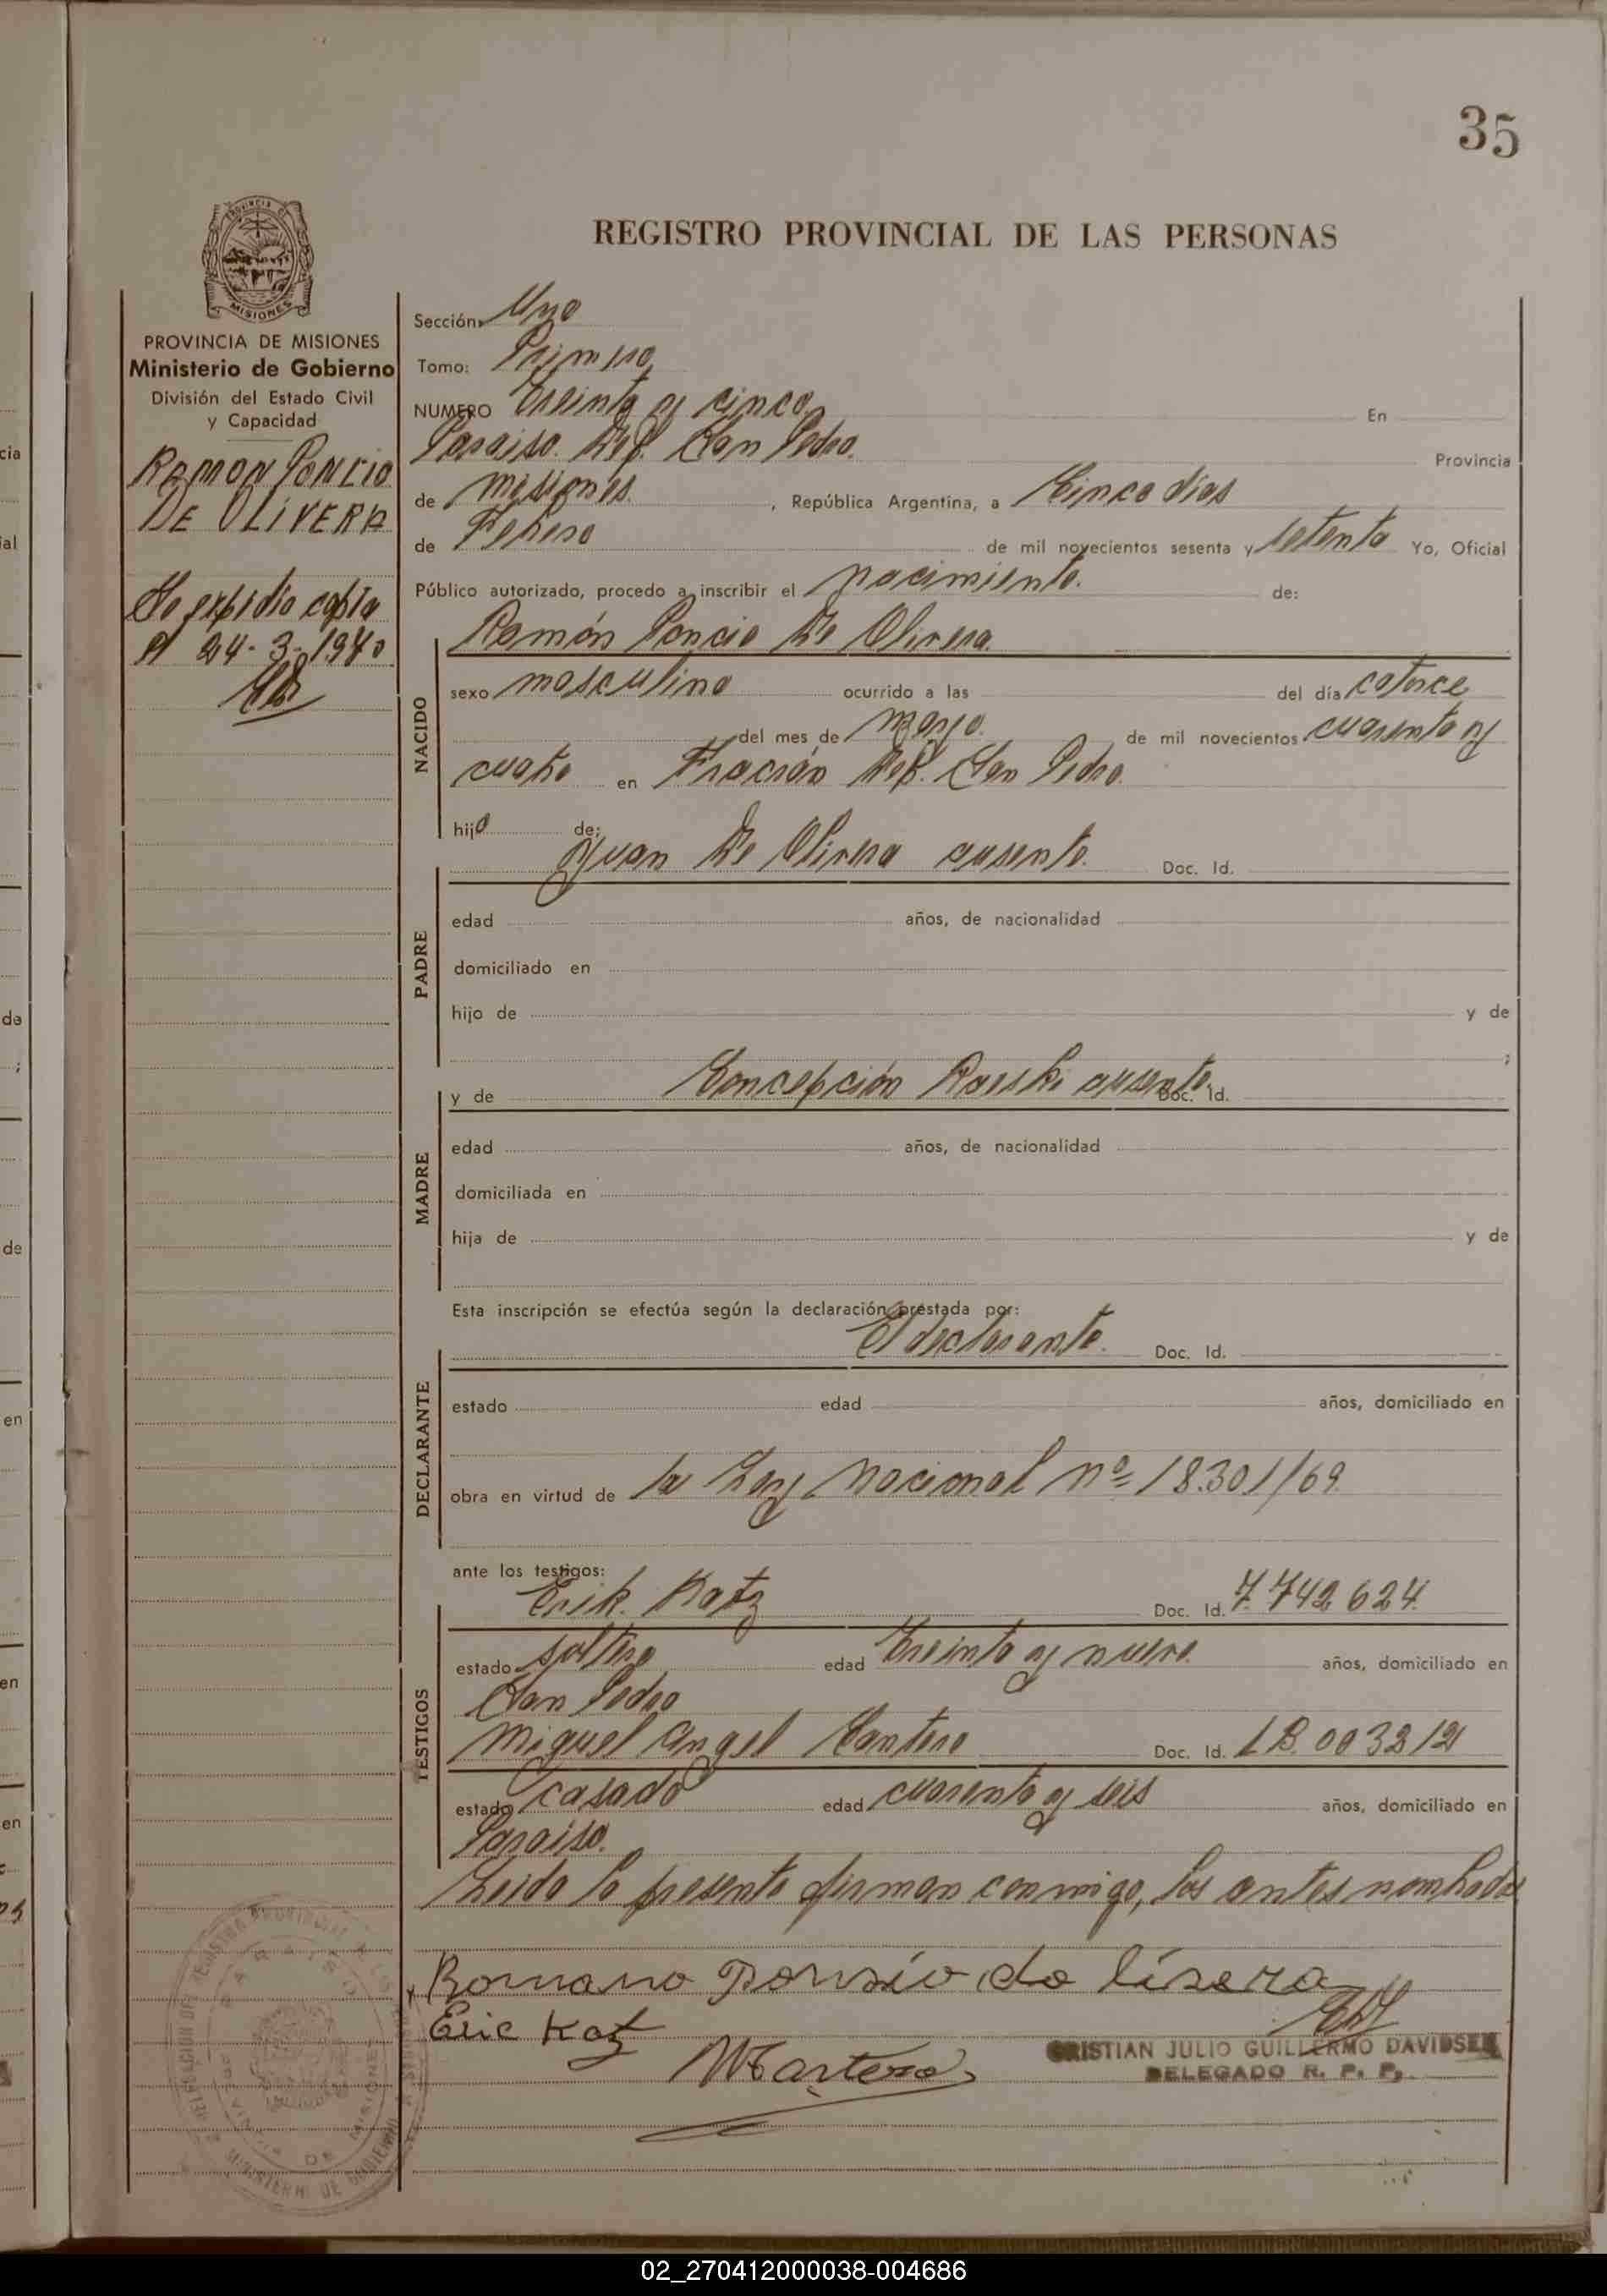 35
PROVINCIA DE
MISIONES
REGISTRO PROVINCIAL DE LAS PERSONAS
PROVINCIA DE MISIONES
Ministerio de Gobierno
División del Estado Civil
y Capacidad
RAMON PONCIO
DE OLIVERA
Se expidio copia
el 24-3-1970
Sección: Uno
Tomo: Primero
NUMERO Treinta y cinco En
Paraiso. Dep. San Pedro. Provincia
de Misiones. , República Argentina, a Cinco dias
de Febrero de mil novecientos sesenta y setenta Yo, Oficial
Público autorizado, procedo a inscribir el nacimiento. de:
Ramón Poncio De Olivera.
NACIDO
sexo masculino ocurrido a las del día catorce
del mes de marzo. de mil novecientos cuarenta y
cuatro en Fracrán Dep. San Pedro.
hijo de:
Juan De Olivera ausente. Doc. Id.
PADRE
edad años, de nacionalidad
domiciliado en
hijo de y de
;
y de Concepción ausente. Doc. Id.
MADRE
edad años, de nacionalidad
domiciliada en
hija de y de
Esta inscripción se efectúa según la declaración prestada por:
El declarante. Doc. Id.
DECLARANTE
estado edad años, domiciliado en
obra en virtud de la Ley Nacional nº 18.301/69.
ante los testigos:
Erik. Katz Doc. Id. 7.742624.
TESTIGOS
estado soltero edad treinta y nueve. años, domiciliado en
San Pedro
Miguel Angel Doc. Id.
estado casado edad cuarenta y seis años, domiciliado en
Paraiso.
Leida la presente firman conmigo, los antes nombrados
Eric Katz
CRISTIAN JULIO GUILLERMO DAVIDSEN
DELEGADO R. P. P.
02_270412000038-004686